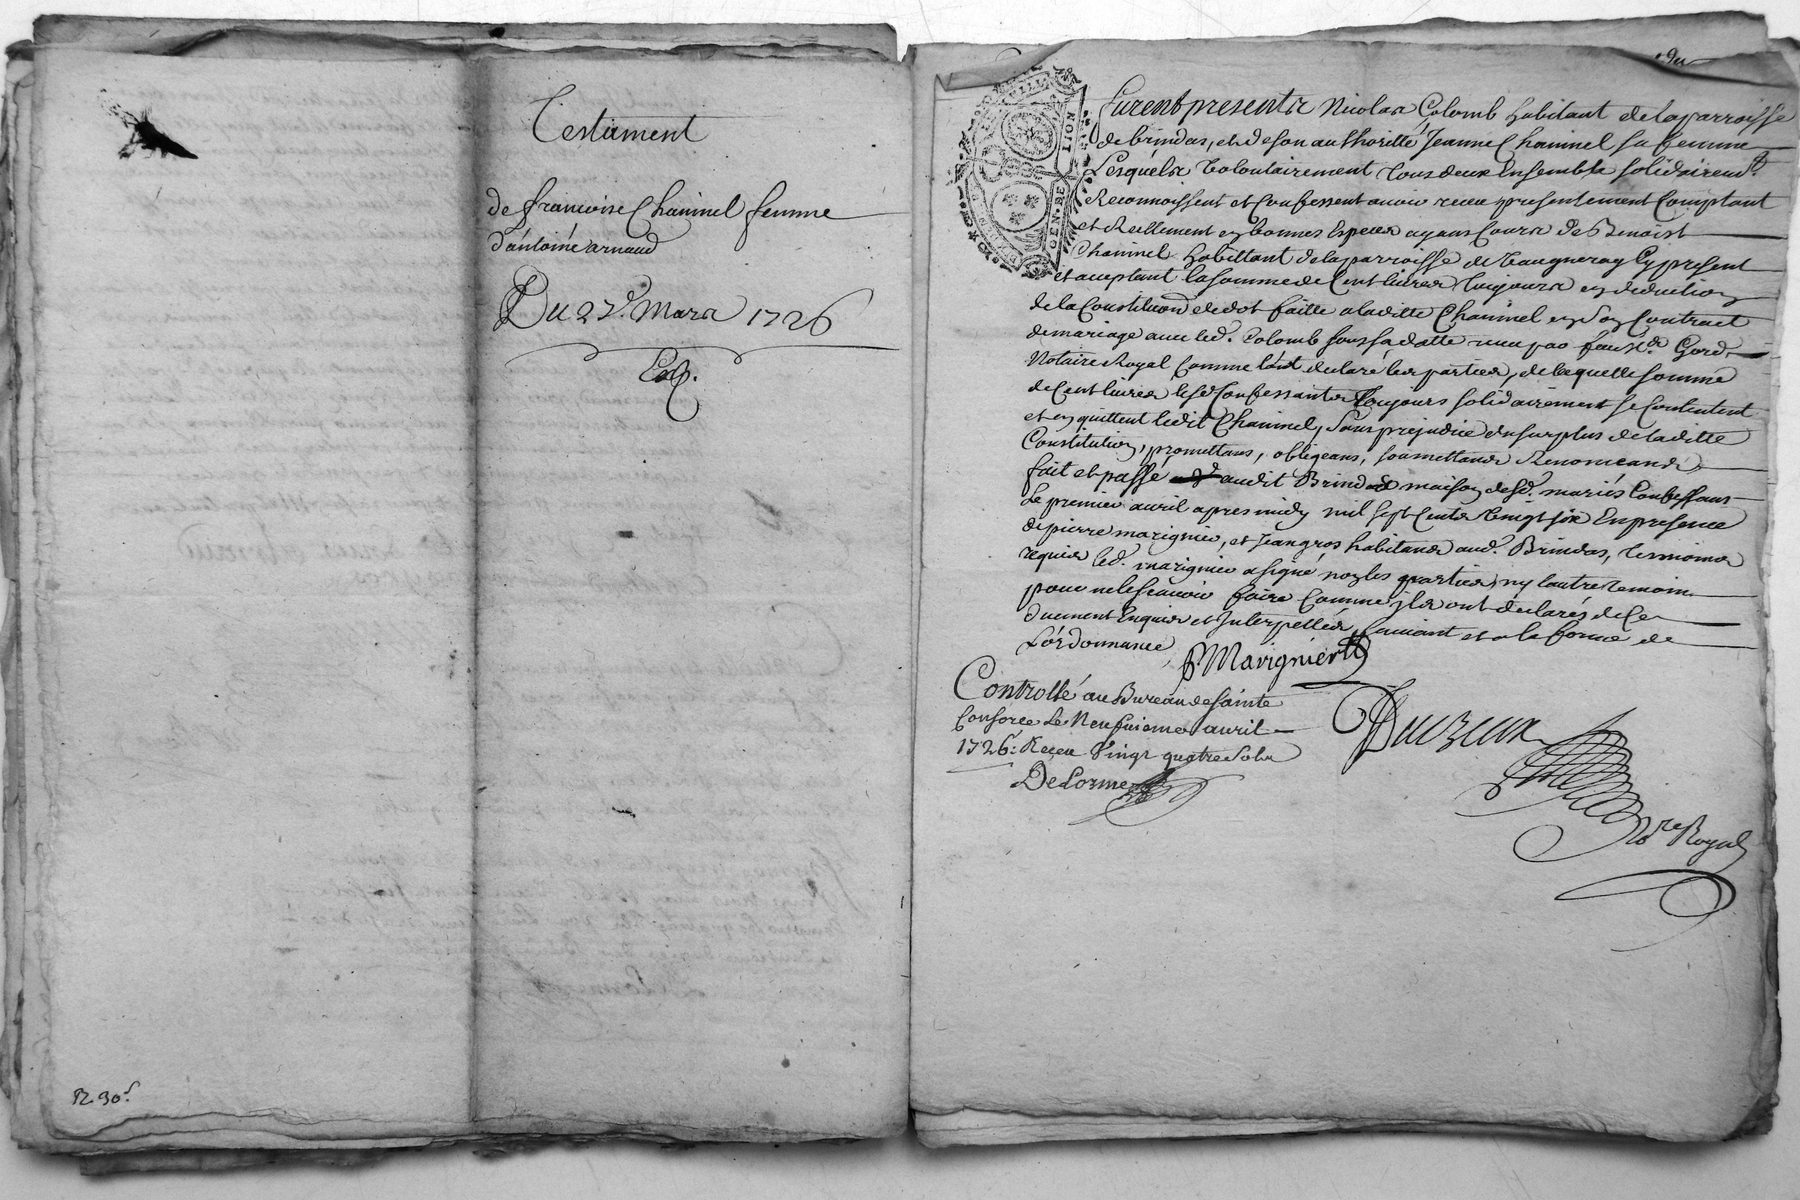 Testament
de francoise Chaninel femme
d'antoine arnaud
Du 27e. Mars 1726
Exp.
R. 30s.
Furent presents Nicolas Colomb habitant de la parroisse
de brindas, et de son authoritté Jeanne Chaninel sa femme
Lesquels volontairement tous deux Ensemble solidairemt.
Reconnoissent et Confessent avoir receu presentement Comptant
et Reellement en bonnes Especes ayans Cours de Benoist
Chaninel habittant de la parroisse de Vaugneray Cy present
et aceptant la somme de Cent livres toujours en deduction
de la Constitution de dot faitte a laditte Chaninel en son Contract
de mariage avec led. Colomb sous sa datte receu par feu Me. Gord
Notaire Royal Comme l'ont declaré les parties, de laquelle somme
de Cent livres lesd Confessants toujours solidairement se Contentent
et en quittent ledit Chaninel, sans prejudice du surplus de laditte
Constitution, promettans, obligeans, soumettans Renonceans
fait et passé audit Brindas maison desd. mariés Confessans
Le premier avril apres midy mil sept Cents vingt six En presence
de pierre marignier, et Jean gros habitans aud. Brindas, tesmoins
requis led. marignier a signé non les parties ny l'autre temoin
pour ne le scavoir faire Comme ils ont declarés de Ce
duement Enquis et Interpellés suivant et a la forme de
L'ordonnance
P. Marignier
Controllé au Bureau de sainte
Consorce Le Neufuieme avril
1726: Receu Vingt quatre sols
DeLorme
Ducreux
Nre Royal
GEN. DE LION